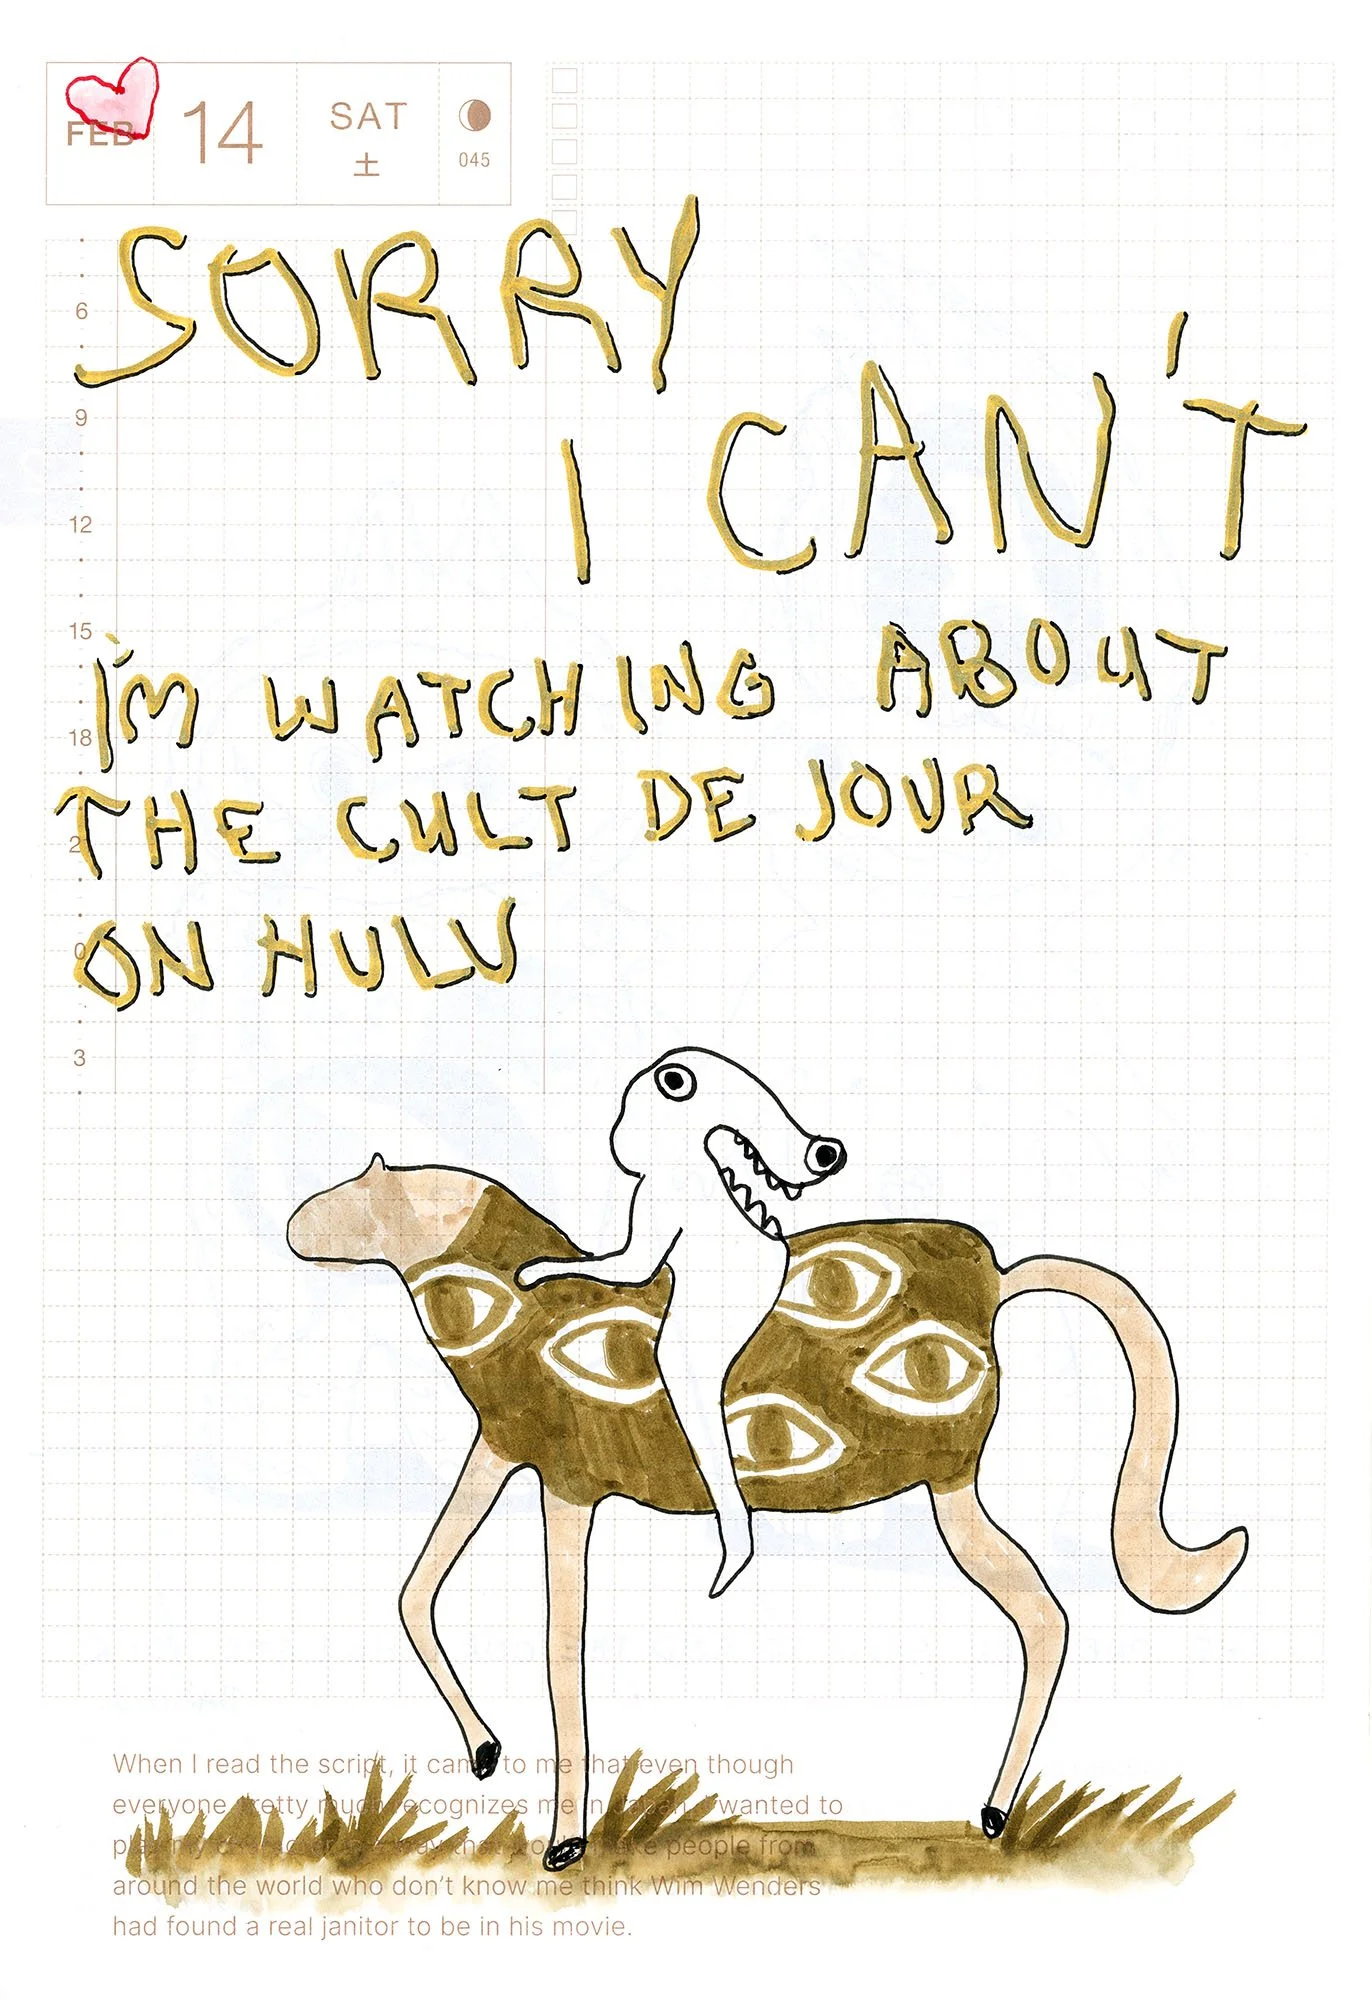 FEB 14 SAT 土 045
SORRY
I CAN'T
I'M WATCHING ABOUT
THE CULT DE JOUR
ON HULU
6
9
12
15
18
2
0
3
When I read the script, it came to me that even though
everyone pretty much recognizes me in Japan, I wanted to
play my character in a way that would make people from
around the world who don't know me think Wim Wenders
had found a real janitor to be in his movie.